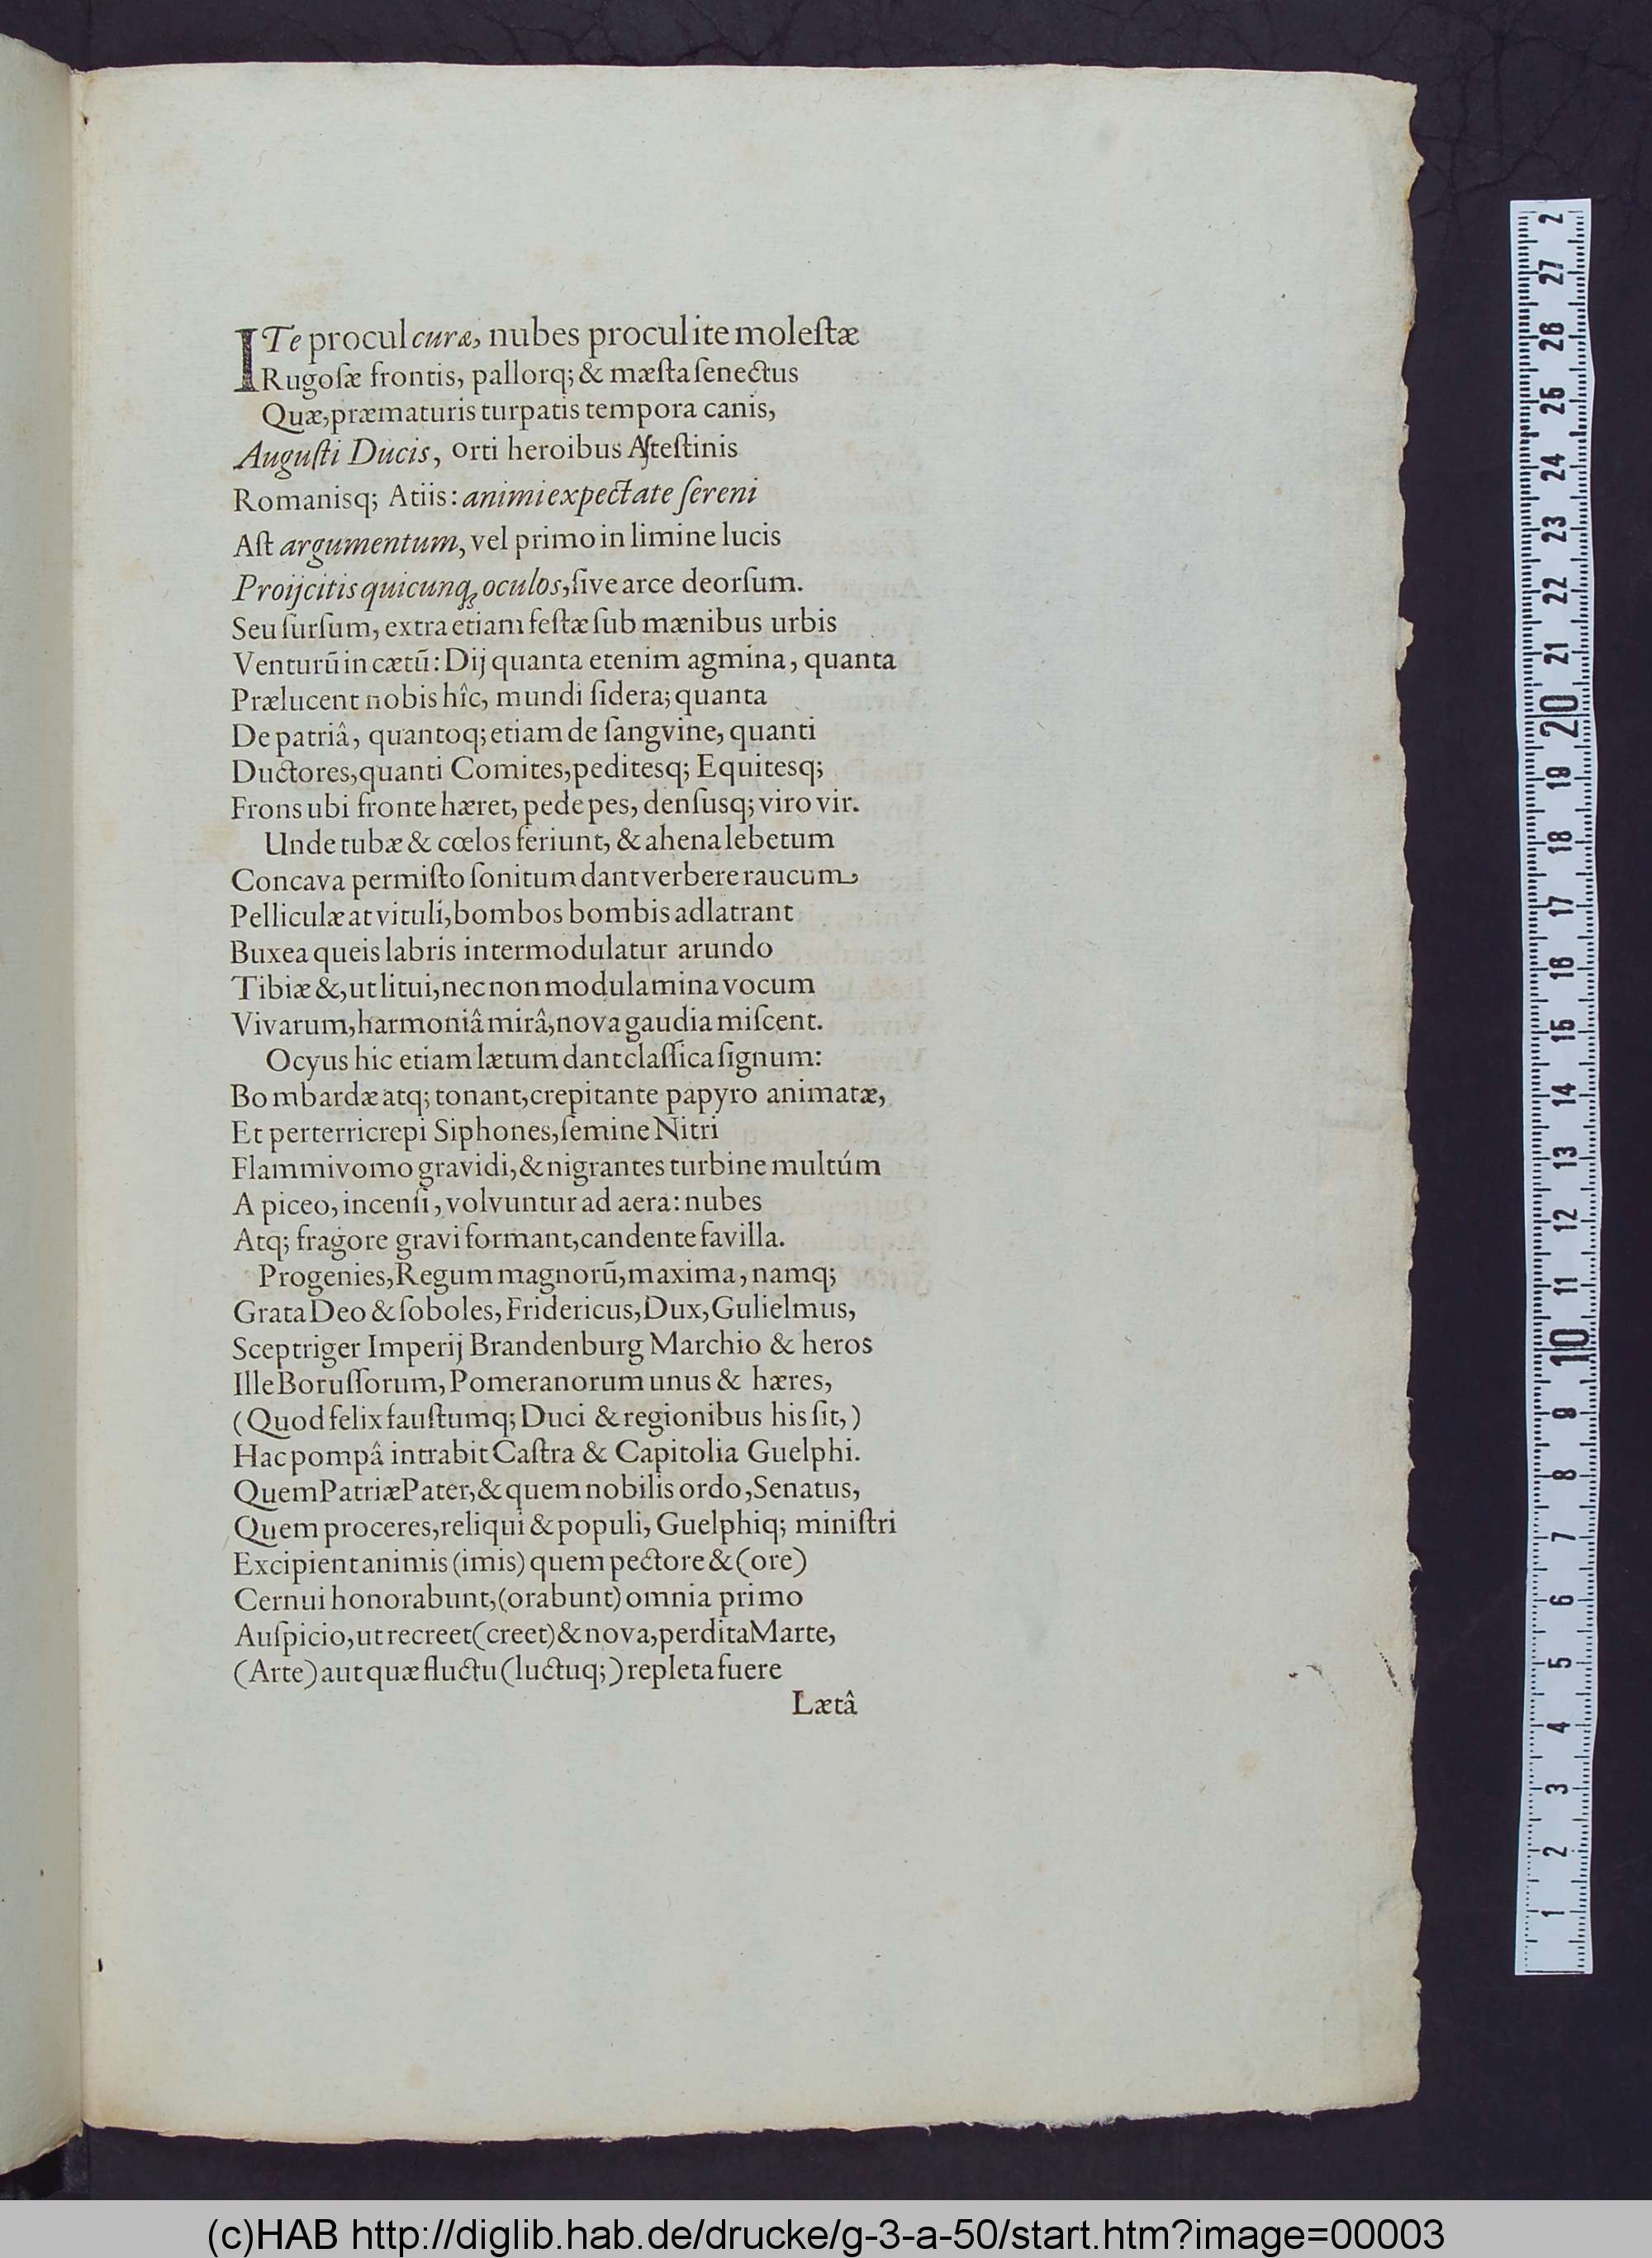 ITe procul curæ, nubes procul ite moleſtæ
Rugoſæ frontis, pallorq; & mæſta ſenectus
Quæ, præmaturis turpatis tempora canis,
Auguſti Ducis, orti heroibus Aſteſtinis
Romanisq; Atiis: animi expectate ſereni
Aſt argumentum, vel primo in limine lucis
Proijcitis quicunq; oculos, ſive arce deorſum.
Seu ſurſum, extra etiam feſtæ ſub mænibus urbis
Venturū in cætū: Dij quanta etenim agmina, quanta
Prælucent nobis hîc, mundi ſidera; quanta
De patriâ, quantoq; etiam de ſangvine, quanti
Ductores, quanti Comites, peditesq; Equitesq;
Frons ubi fronte hæret, pede pes, denſusq; viro vir.
Unde tubæ & cœlos feriunt, & ahena lebetum
Concava permiſto ſonitum dant verbere raucum,
Pelliculæ at vituli, bombos bombis adlatrant
Buxea queis labris intermodulatur arundo
Tibiæ &, ut litui, nec non modulamina vocum
Vivarum, harmoniâ mirâ, nova gaudia miſcent.
Ocyus hic etiam lætum dant claſſica ſignum:
Bombardæ atq; tonant, crepitante papyro animatæ,
Et perterricrepi Siphones, ſemine Nitri
Flammivomo gravidi, & nigrantes turbine multúm
A piceo, incenſi, volvuntur ad aera: nubes
Atq; fragore gravi formant, candente favilla.
Progenies, Regum magnorū, maxima, namq;
Grata Deo & ſoboles, Fridericus, Dux, Gulielmus,
Sceptriger Imperij Brandenburg Marchio & heros
Ille Boruſſorum, Pomeranorum unus & hæres,
(Quod felix fauſtumq; Duci & regionibus his ſit,)
Hac pompâ intrabit Caſtra & Capitolia Guelphi.
Quem Patriæ Pater, & quem nobilis ordo, Senatus,
Quem proceres, reliqui & populi, Guelphiq; miniſtri
Excipient animis (imis) quem pectore & (ore)
Cernui honorabunt, (orabunt) omnia primo
Auſpicio, ut recreet (creet) & nova, perdita Marte,
(Arte) aut quæ fluctu (luctuq;) repleta fuere
Lætâ
2 27 26 25 24 23 22 21 20 19 18 17 16 15 14 13 12 11 10 9 8 7 6 5 4 3 2 1
(c)HAB http://diglib.hab.de/drucke/g-3-a-50/start.htm?image=00003